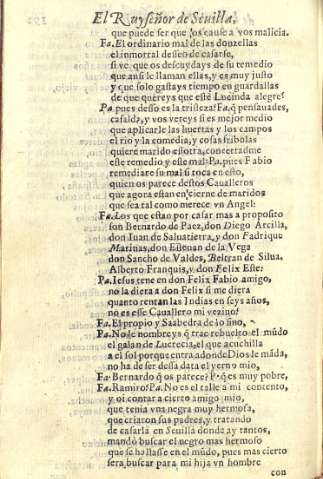 El Ruyseñor de Seuilla,
que puede ser que os cause a vos malicia.
Fa. El ordinario mal de las donzellas
el inmortal desseo de casarse,
si ve que os descuydays de su remedio
que ansi le llaman ellas, y es muy justo
y que solo gastays tiempo en guardallas
de que quereys que esté Lucinda alegre?
Pa. pues desso es la tristeza? Fa. q̃ pensauades,
casalda, y vos vereys si es mejor medio
que aplicarle las huertas y los campos
el rio y la comedia, y cosas friuolas
quiere marido ellotra, concertadme
este remedio y este mal: Pa. pues Fabio
remediare su mal si toca en esto,
quien os parece destos Caualleros
que agora estan en cierne de maridos
que sea tal como merece vn Angel:
Fa. Los que estan por casar mas a proposito
son Bernardo de Paez, don Diego Arcilla,
don Iuan de Saluatierra, y don Fadrique
Marinas, don Esteuan de la Vega
don Sancho de Valdes, Beltran de Silua,
Alberto Franquis, y don Felix Este:
Pa. Iesus tene en don Felix Fabio amigo,
no la diera a don Felix si me diera
quanto rentan las Indias en seys años,
no es esse Cauallero mi vezino?
Fa. El propio y Saabedra de lo fino,
Pa. No le nombreys q̃ trae rebuelto el mũdo
el galan de Lucrecia, el que acuchilla
a el sol porque entra adonde Dios le mãda,
no ha de ser dessa data el yerno mio,
Fa. Bernardo q̃ os parece? P. q̃ es muy pobre,
Fa. Ramiro? Pa. No es el talle a mi contento,
y oi contar a cierto amigo mio,
que tenia vna negra muy hermosa,
que criaron sus padres, y tratando
de casarla en Seuilla donde ay tantos,
mandò buscar el negro mas hermoso
que se hallasse en el mũdo, pues mas cierto
sera, buscar para mi hija vn hombre
con